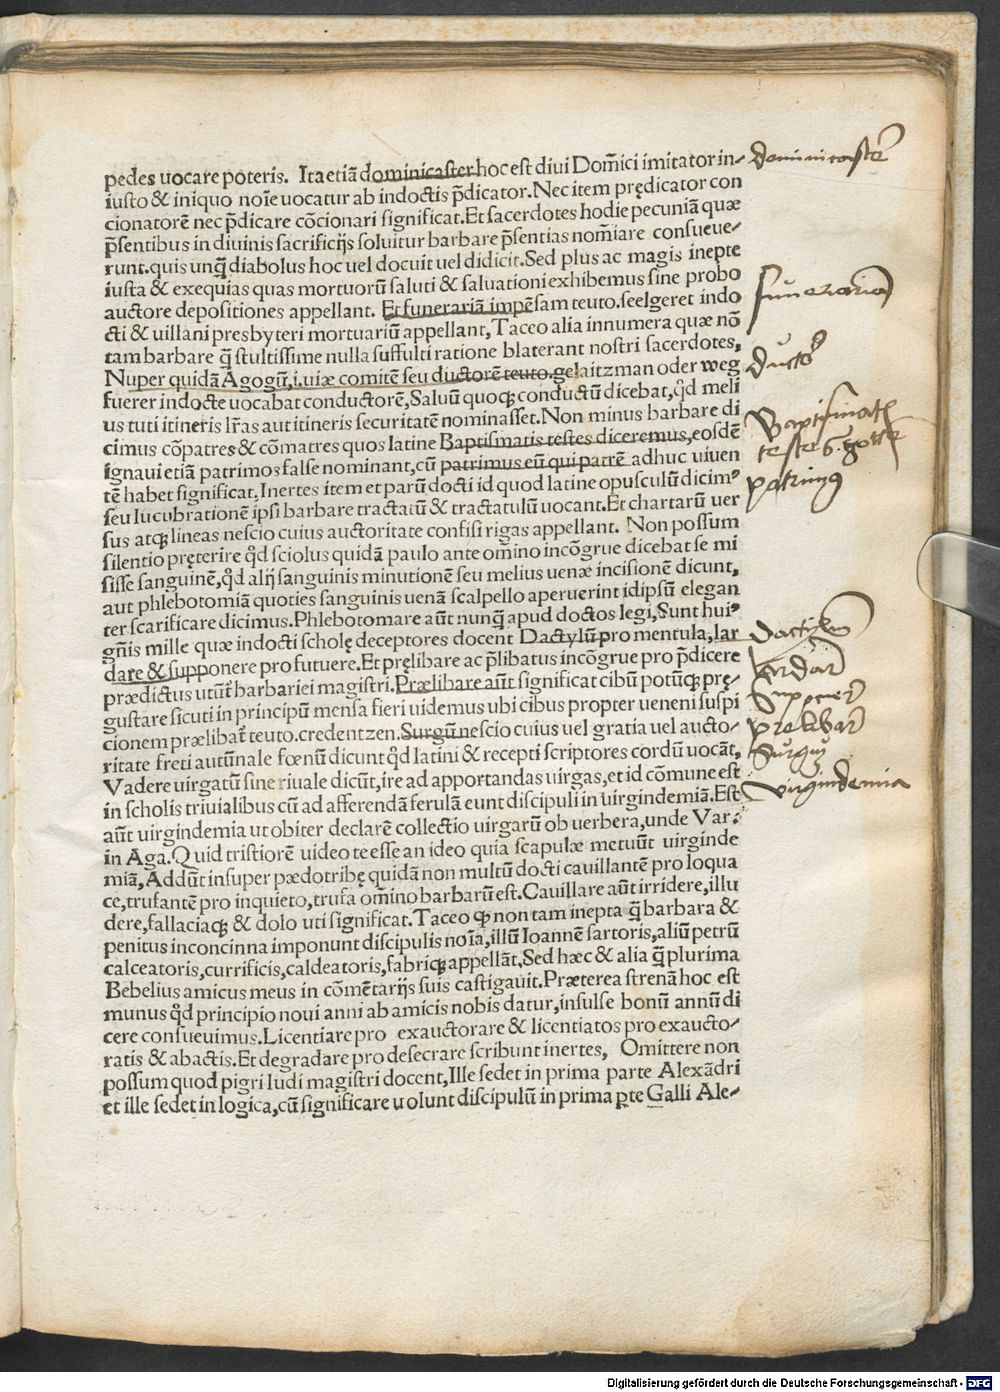 pedes uocare poteris. Ita etiã dominicaster hoc est diui Dom̃ici imitator in-
iusto & iniquo noĩe uocatur ab indoctis p̃dicator. Nec item prędicator con
cionatorẽ nec p̃dicare cõcionari significat. Et sacerdotes hodie pecuniã quæ
p̃sentibus in diuinis sacrificijs soluitur barbare p̃sentias nom̃iare consueue-
runt. quis unq̃ diabolus hoc uel docuit uel didicit. Sed plus ac magis inepte
iusta & exequias quas mortuorũ saluti & saluationi exhibemus sine probo
auctore depositiones appellant. Et funerariã impẽsam teuto. seelgeret indo
cti & uillani presbyteri mortuariũ appellant, Taceo alia innumera quæ nõ
tam barbare q̃ stultissime nulla suffulti ratione blaterant nostri sacerdotes,
Nuper quidã Agogũ, i. uiæ comitẽ seu ductorẽ teuto. gelaitzman oder weg
fuerer indocte uocabat conductorẽ, Saluũ quoqꝫ conductũ dicebat, q̃d meli
us tuti itineris lr̃as aut itineris securitatẽ nominasset. Non minus barbare di
cimus cõpatres & cõmatres quos latine Baptismatis testes diceremus, eosdẽ
ignaui etiã patrimos false nominant, cũ patrimus eũ qui patrẽ adhuc uiuen
tẽ habet significat. Inertes item et parũ docti id quod latine opusculũ dicimꝰ
seu lucubrationẽ ipsi barbare tractatũ & tractatulũ uocant. Et chartarũ uer
sus atqꝫ lineas nescio cuius auctoritate confisi rigas appellant. Non possum
silentio pręterire q̃d sciolus quidã paulo ante om̃ino incõgrue dicebat se mi
sisse sanguinẽ, q̃d alij sanguinis minutionẽ seu melius uenæ incisionẽ dicunt,
aut phlebotomiã quoties sanguinis uenã scalpello aperuerint idipsũ elegan
ter scarificare dicimus. Phlebotomare aũt nunq̃ apud doctos legi, Sunt huiꝰ
gñis mille quæ indocti scholę deceptores docent Dactylũ pro mentula, lar
dare & supponere pro futuere. Et pręlibare ac p̃libatus incõgrue pro p̃dicere
prædictus utũt̃ barbariei magistri. Prælibare aũt significat cibũ potũqꝫ prę-
gustare sicuti in principũ mensa fieri uidemus ubi cibus propter ueneni suspi
cionem prælibat̃ teuto. credentzen. Surgũ nescio cuius uel gratia uel aucto-
ritate freti autũnale fœnũ dicunt q̃d latini & recepti scriptores cordũ uocãt,
Vadere uirgatũ sine riuale dicũt, ire ad apportandas uirgas, et id cõmune est
in scholis triuialibus cũ ad afferendã ferulã eunt discipuli in uirgindemiã. Est
aũt uirgindemia ut obiter declarẽ collectio uirgarũ ob uerbera, unde Var.
in Aga. Quid tristiorẽ uideo te esse an ideo quia scapulæ metuũt uirginde
miã, Addũt insuper pædotribę quidã non multũ docti cauillantẽ pro loqua
ce, trufantẽ pro inquieto, trufa om̃ino barbarũ est. Cauillare aũt irridere, illu
dere, fallaciaqꝫ & dolo uti significat. Taceo ꝙ non tam inepta q̃ barbara &
penitus inconcinna imponunt discipulis noĩa, illũ Ioannẽ sartoris, aliũ petrũ
calceatoris, currificis, caldeatoris, fabriqꝫ appellãt, Sed hæc & alia q̃ plurima
Bebelius amicus meus in cõmẽtarijs suis castigauit. Præterea strenã hoc est
munus q̃d principio noui anni ab amicis nobis datur, insulse bonũ annũ di
cere consueuimus. Licentiare pro exauctorare & licentiatos pro exaucto-
ratis & abactis. Et degradare pro desecrare scribunt inertes, Omittere non
possum quod pigri ludi magistri docent, Ille sedet in prima parte Alexãdri
et ille sedet in logica, cũ significare uolunt discipulũ in prima ꝑte Galli Ale-
dominicaster
funeraria
ductor
Baptismatis
testes
patrimus
Dactylum
Lardare
Suponere
prelibare
Surgum
virgindemia
Digitalisierung gefördert durch die Deutsche Forschungsgemeinschaft - DFG